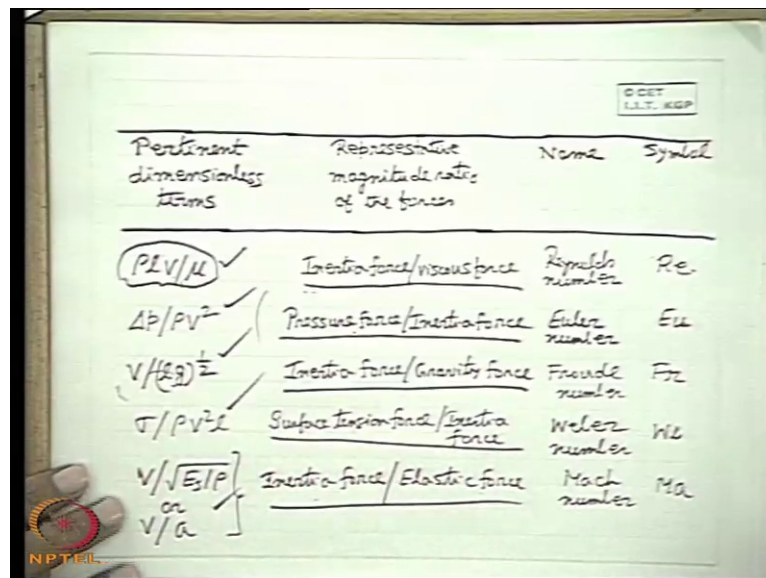 © CET
I.I.T. KGP
Pertinent dimensionless terms
Representative magnitude ratio of the forces
Name
Symbol
ρlV/μ ✓ Inertia force/viscous force Reynolds number Re.
Δp/ρV² ✓ Pressure force/Inertia force Euler number Eu
V/(lg)^½ ✓ Inertia force/Gravity force Froude number Fr
σ/ρV²l ✓ Surface Tension force/Inertia force Weber number We
V/√Es/ρ or V/a ✓ Inertia force/Elastic force Mach number Ma
NPTEL